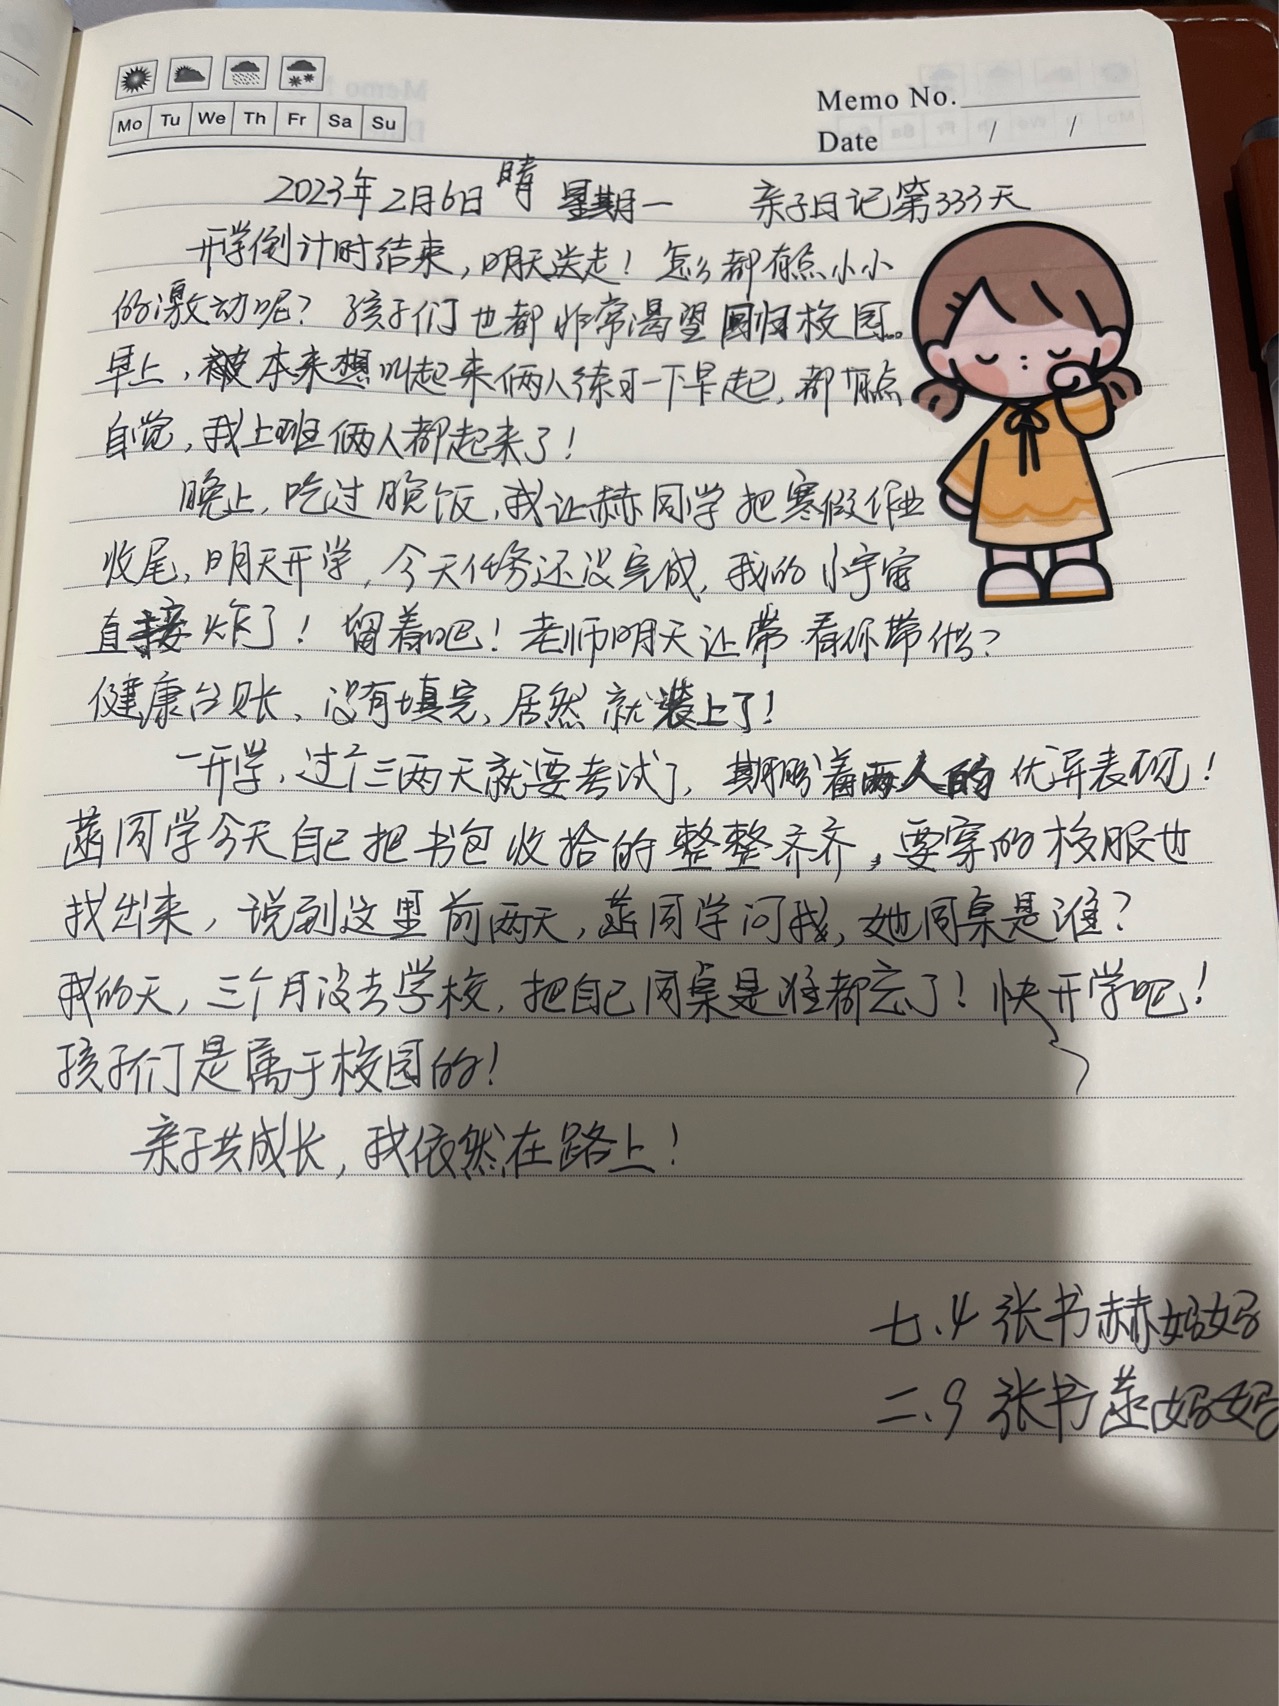 Mo Tu We Th Fr Sa Su
Memo No.
Date / /
2023年2月6日 晴 星期一 亲子日记第333天
开学倒计时结束，明天送走！怎么都有点小小
的激动呢？孩子们也都非常渴望回归校园。
早上，被本来想叫起来俩人练习一下早起，都有点
自觉，我上班俩人都起来了！
晚上，吃过晚饭，我让赫同学把寒假作业
收尾，明天开学，今天任务还没完成，我的小宇宙
直接炸了！留着吧！老师明天让带看你带什么？
健康台账，没有填完，居然就装上了！
一开学，过个三两天就要考试了，期盼着两人的优异表现！
菡同学今天自己把书包收拾的整整齐齐，要穿的校服也
找出来，说到这里前两天，菡同学问我，她同桌是谁？
我的天，三个月没去学校，把自己同桌是谁都忘了！快开学吧！
孩子们是属于校园的！
亲子共成长，我依然在路上！
七.4 张书赫妈妈
二.9 张书菡妈妈